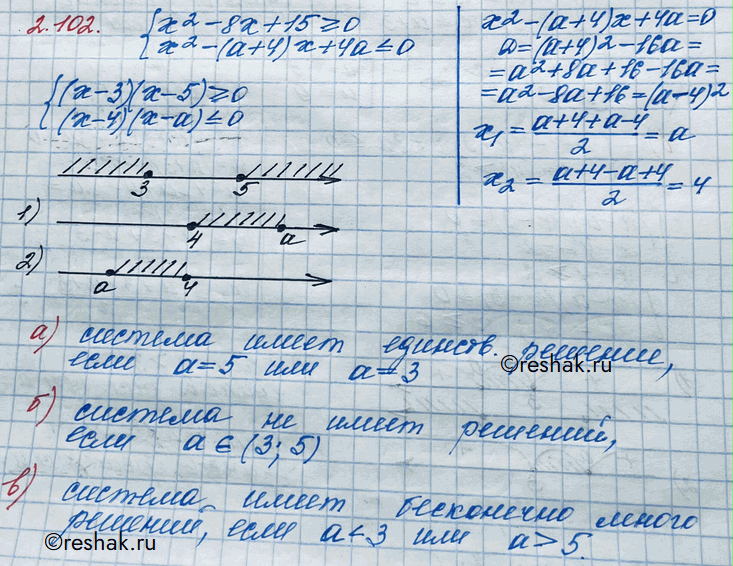 2.102. { x² - 8x + 15 ≥ 0
x² - (a+4)x + 4a ≤ 0
{ (x-3)(x-5) ≥ 0
(x-4)(x-a) ≤ 0
3 5
1) 4 a
2) a 4
x² - (a+4)x + 4a = 0
D = (a+4)² - 16a =
= a² + 8a + 16 - 16a =
= a² - 8a + 16 = (a-4)²
x₁ = (a+4+a-4)/2 = a
x₂ = (a+4-a+4)/2 = 4
а) система имеет единств. решение,
если a = 5 или a = 3
©reshak.ru
б) система не имеет решений,
если a ∈ (3; 5)
в) система имеет бесконечно много
решений, если a < 3 или a > 5.
©reshak.ru